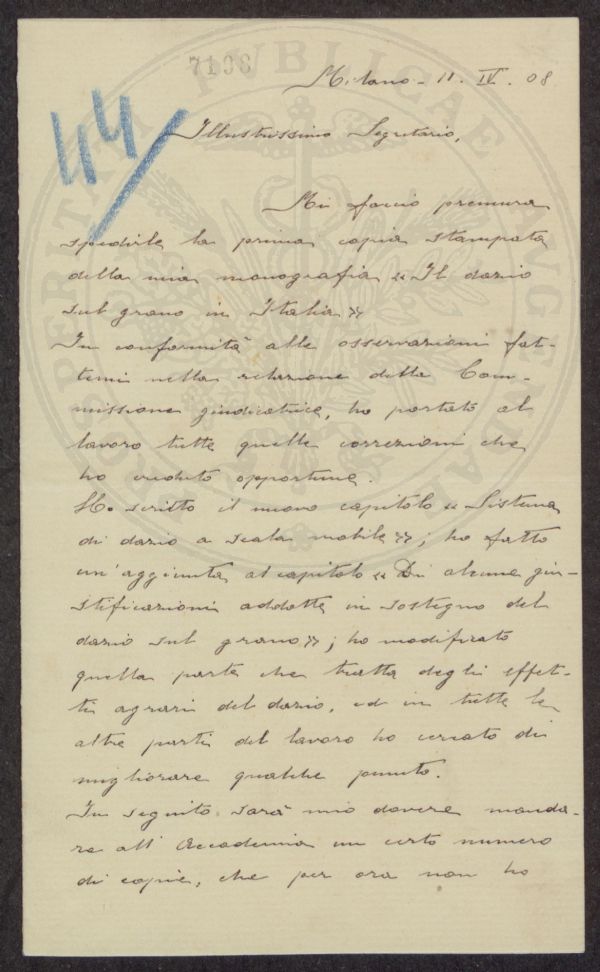 7198
Milano - 11. IV. 08
44
Illustrissimo Segretario,
Mi faccio premura
spedirle la prima copia stampata
della mia monografia « Il dazio
sul grano in Italia »
In conformità alle osservazioni fat-
temi nella relazione della Com-
missione giudicatrice, ho portato al
lavoro tutte quelle correzioni che
ho creduto opportune.
Ho scritto il nuovo capitolo « Sistema
di dazio a scala mobile »; ho fatto
un'aggiunta al capitolo « Di alcune giu-
stificazioni addotte in sostegno del
dazio sul grano »; ho modificato
quella parte che tratta degli effet-
ti agrari del dazio, ed in tutte le
altre parti del lavoro ho cercato di
migliorare qualche punto.
In seguito sarà mio dovere manda-
re all'Accademia un certo numero
di copie, che per ora non ho